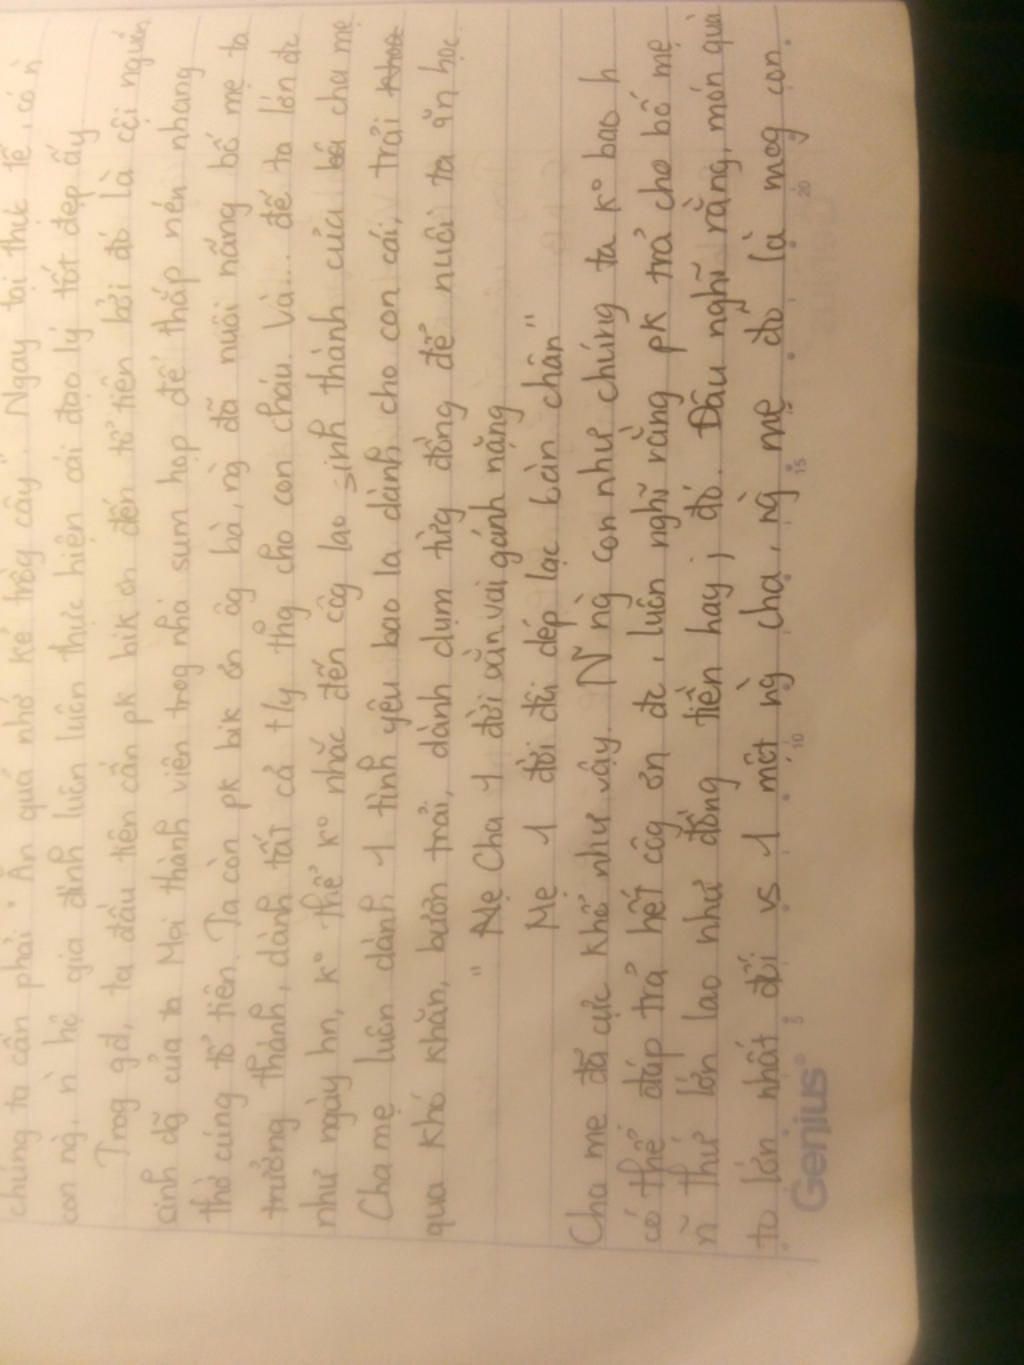 chúng ta cần phải "Ăn quả nhớ kẻ trồg cây". Ngay tại thực tế, có n
con ng, n hệ gia đình luôn luôn thực hiện cái đạo lý tốt đẹp ấy
Trog gđ, ta đầu tiên cần pk bik ơn đến tổ tiên bởi đó là cội nguồn
của ta Mọi thành viên trog nhà sum họp để thắp nén nhang
thờ cúng tổ tiên. Ta còn pk bik ơn ôg bà, ng đã nuôi nấng bố mẹ ta
trưởng thành, dành tất cả t ly thg cho con cháu. Và... để ta lớn đc
như ngày hn, k° thể k° nhắc đến côg lao sinh thành của cha mẹ
Cha mẹ luôn dành 1 tình yêu bao la dành cho con cái, trải
qua khó khăn, bươn trải, dành dụm từg đồng để nuôi ta ăn học.
" Cha 1 đời oằn vai gánh nặng
Mẹ 1 đời đôi dép lạc bàn chân"
Cha mẹ đã cực khổ như vậy. N~ ng` con như chúng ta k° bao h
có thể đáp trả hết côg ơn đc, luôn nghĩ rằng pk trả cho bố mẹ
n~ thứ lớn lao như đồng tiền hay j đó. Đâu nghĩ rằng, món quà
to lớn nhất đối vs 1 một ng` cha, ng` mẹ đó là mog con.
Genius
5 10 15 20